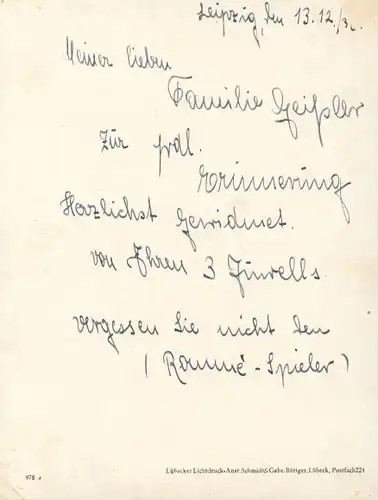 Leipzig, den 13.12./36.
Meiner lieben
Familie Geißler
Zur frdl.
Erinnering
Herzlichst gewidmet.
von Ihren 3 Jüwells.
vergessen Sie nicht den
(Rommé-Spieler)
Lübecker Lichtdruck-Anst. Schmidt & Gebr. Böttger, Lübeck, Postfach 224
978 a